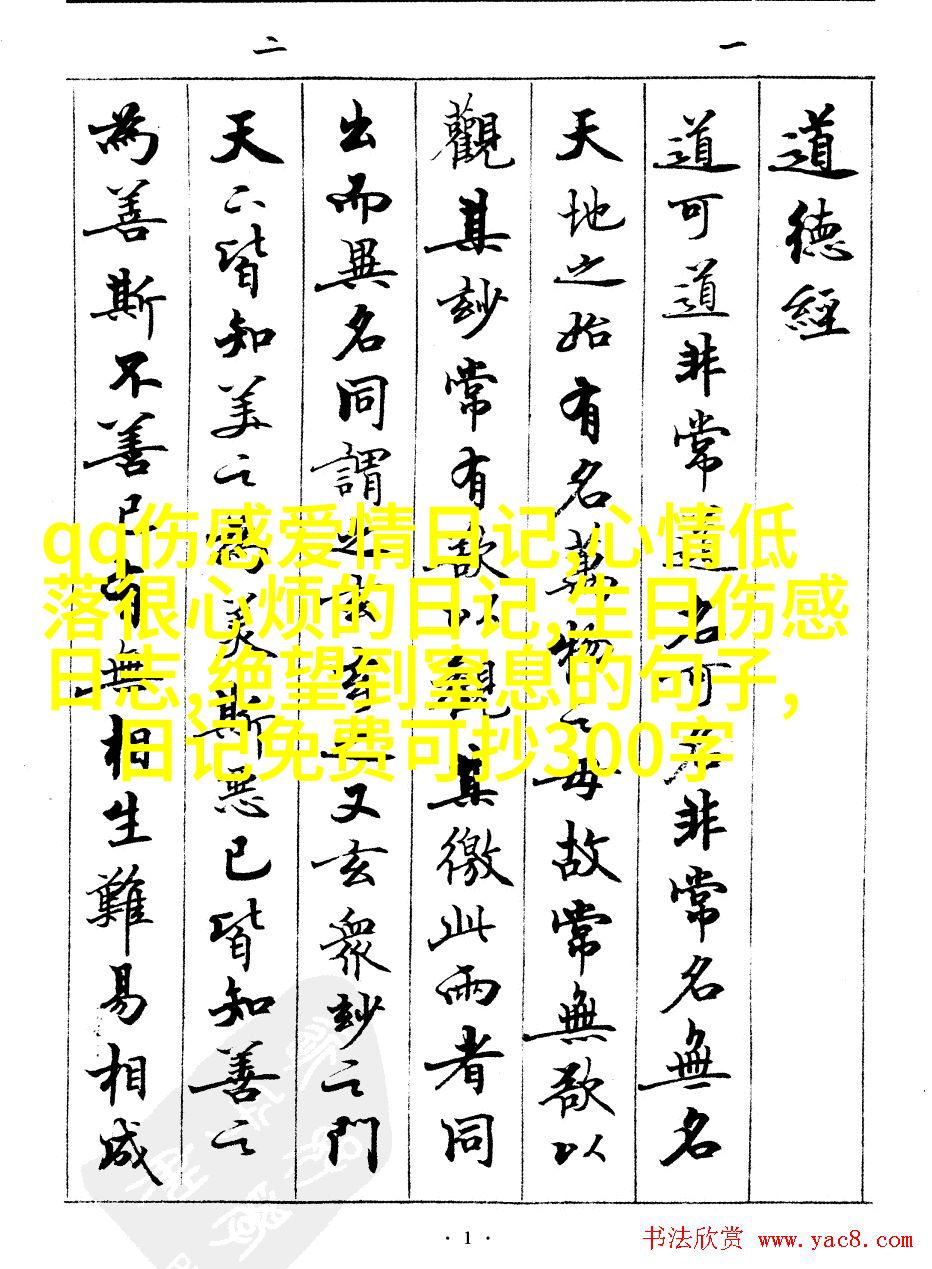 一
二
道德經
道可道非常道名可名非常名無名
天地之始有名萬物之母故常無欲以
觀其玅常有欲以觀其徼此兩者同
出而異名同謂之玄玄之又玄眾玅之門
天下皆知美之為美斯惡已皆知善之
為善斯不善已有無相生難易相成
qq伤感爱情日记,心情低
落很心烦的日记,生日伤感
日志,绝望到窒息的句子,
日记免费可抄300字
· 1 ·
书法欣赏 www.yac8.com